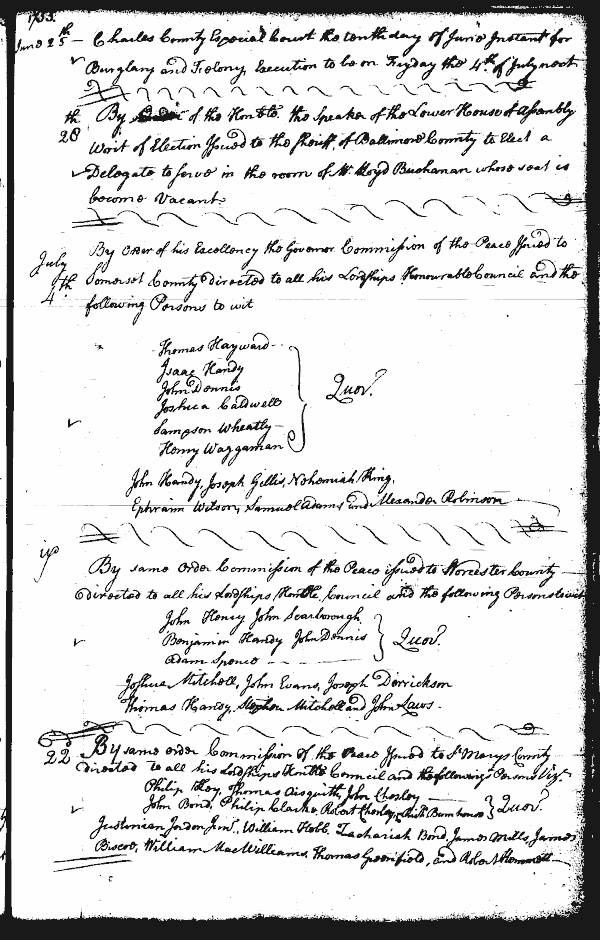 1753.
June 25th Charles County Especial Court the tenth day of June Instant for
Burglary and Felony, Execution to be on Fryday the 4th of July next
th
28 By of the Honble. the Speaker of the Lower House of Assembly
Writ of Election Issued to the Sheriff of Baltimore County to Elect a
Delegate to serve in the room of Mr. Lloyd Buchanan whose seat is
become Vacant.
July
4th By Order of his Excellency the Governor Commission of the Peace Issued to
Somerset County directed to all his Lordships Honourable Council and the
following Persons to wit
Thomas Hayward
Isaac Handy
John Dennis
Joshua Caldwell
Sampson Wheatly
Henry Waggaman
Quor.
John Handy, Joseph Gillis, Nehemiah King,
Ephraim Wilson, Samuel Adams and Alexander Robinson
By same Order Commission of the Peace issued to Worcester County
directed to all his Lordships Honble. Council and the following Persons to wit
John Henry John Scarborough
Benjamin Handy John Dennis
Adam Spence
Quor.
Joshua Mitchell, John Evans, Joseph Derrickson
Thomas Handy, Stephen Mitchell and John Laws.
22d By same order Commission of the Peace Issued to St Marys County
directed to all his Lordships Honble Council and the following Persons Vizt.
Philip Key, Thomas Aisquith, John Chesley
John Bond, Philip Clarke, Robert Chesley, Quor.
Justinian Jordon Junr., William Hebb, Zachariah Bond, James Mills, James
Biscoe, William MacWilliams, Thomas Greenfield, and Robert Hammett